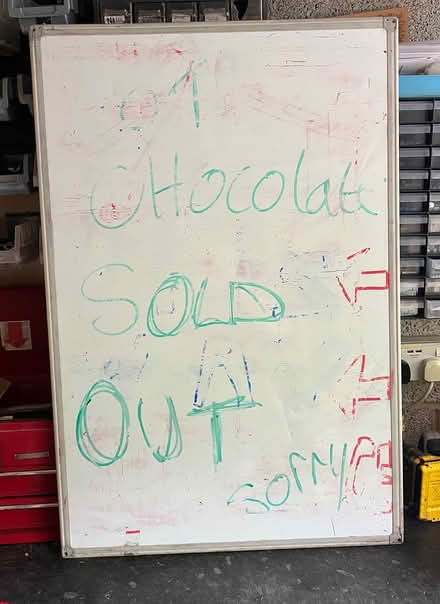 CHocolate
SOLD
OUT
sorry